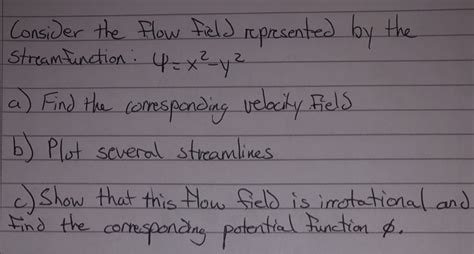 Consider the flow field represented by the
streamfunction: ψ=x²-y²
a) Find the corresponding velocity field
b) Plot several streamlines
c) Show that this flow field is irrotational and
find the corresponding potential function ϕ.